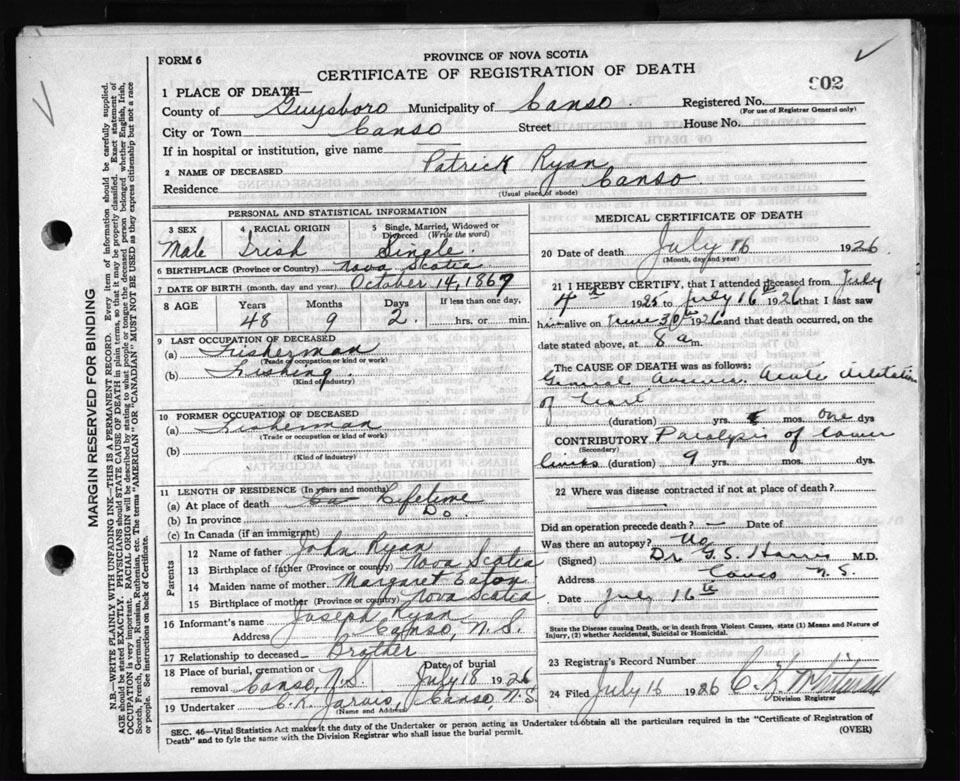 PROVINCE OF NOVA SCOTIA
FORM 6
CERTIFICATE OF REGISTRATION OF DEATH
902
1 PLACE OF DEATH—
County of Guysboro Municipality of Canso. Registered No.
(For use of Registrar General only)
City or Town Canso Street House No.
If in hospital or institution, give name —
2 NAME OF DECEASED Patrick Ryan
Residence Canso
(Usual place of abode)
PERSONAL AND STATISTICAL INFORMATION
3 SEX Male
4 RACIAL ORIGIN Irish
5 Single, Married, Widowed or Divorced (Write the word) Single.
6 BIRTHPLACE (Province or Country) Nova Scotia
7 DATE OF BIRTH (month, day and year) October 14, 1867
8 AGE Years Months Days If less than one day,
48 9 2 hrs. or min.
9 LAST OCCUPATION OF DECEASED
(a) Fisherman
(Trade or occupation or kind or work)
(b) Fishing.
(Kind of industry)
10 FORMER OCCUPATION OF DECEASED
(a) Fisherman
(Trade or occupation or kind of work)
(b)
(Kind of industry)
11 LENGTH OF RESIDENCE (In years and months)
(a) At place of death Lifetime
(b) In province Do
(c) In Canada (if an immigrant)
Parents
12 Name of father John Ryan
13 Birthplace of father (Province or country) Nova Scotia
14 Maiden name of mother Margaret Eaton
15 Birthplace of mother (Province or country) Nova Scotia
16 Informant's name Joseph Ryan
Address Canso, N.S.
17 Relationship to deceased Brother
18 Place of burial, cremation or removal Canso, N.S. Date of burial July 18 1926
19 Undertaker C.K. Jarvis, Canso, N.S
(Name and Address)
MEDICAL CERTIFICATE OF DEATH
20 Date of death July 16 1926
(Month, day and year)
21 I HEREBY CERTIFY, that I attended deceased from July
4th 1925 to July 16th 1926 that I last saw
him alive on June 30th 1926 and that death occurred, on
date stated above, at 8 am.
The CAUSE OF DEATH was as follows:
General Acute dilatation
of heart
(duration) yrs. mos. one dys
CONTRIBUTORY Paralysis of lower
(Secondary)
limbs (duration) 9 yrs. mos. dys.
22 Where was disease contracted if not at place of death?
Did an operation precede death? — Date of
Was there an autopsy? No
(Signed) Dr G.S. Harris M.D.
Address Canso N.S.
Date July 16th
State the Disease causing Death, or in death from Violent Causes, state (1) Means and Nature of
Injury, (2) whether Accidental, Suicidal or Homicidal.
23 Registrar's Record Number
24 Filed July 16 1926 C K
Division Registrar
SEC. 46—Vital Statistics Act makes it the duty of the Undertaker or person acting as Undertaker to obtain all the particulars required in the "Certificate of Registration of
Death" and to fyle the same with the Division Registrar who shall issue the burial permit. (OVER)
MARGIN RESERVED FOR BINDING
N.B.—WRITE PLAINLY WITH UNFADING INK—THIS IS A PERMANENT RECORD. Every item of information should be carefully supplied.
AGE should be stated EXACTLY. PHYSICIANS should STATE CAUSE OF DEATH in plain terms, so that it may be properly classified. Exact statement of
OCCUPATION is very important. RACIAL ORIGIN will be described by stating to what people or tongue the deceased person belonged whether English, Irish,
Scotch, French, German, Russian, Ruthenian, etc. The terms "AMERICAN" OR "CANADIAN" MUST NOT BE USED as they express citizenship but not a race
or people. See instructions on back of Certificate.